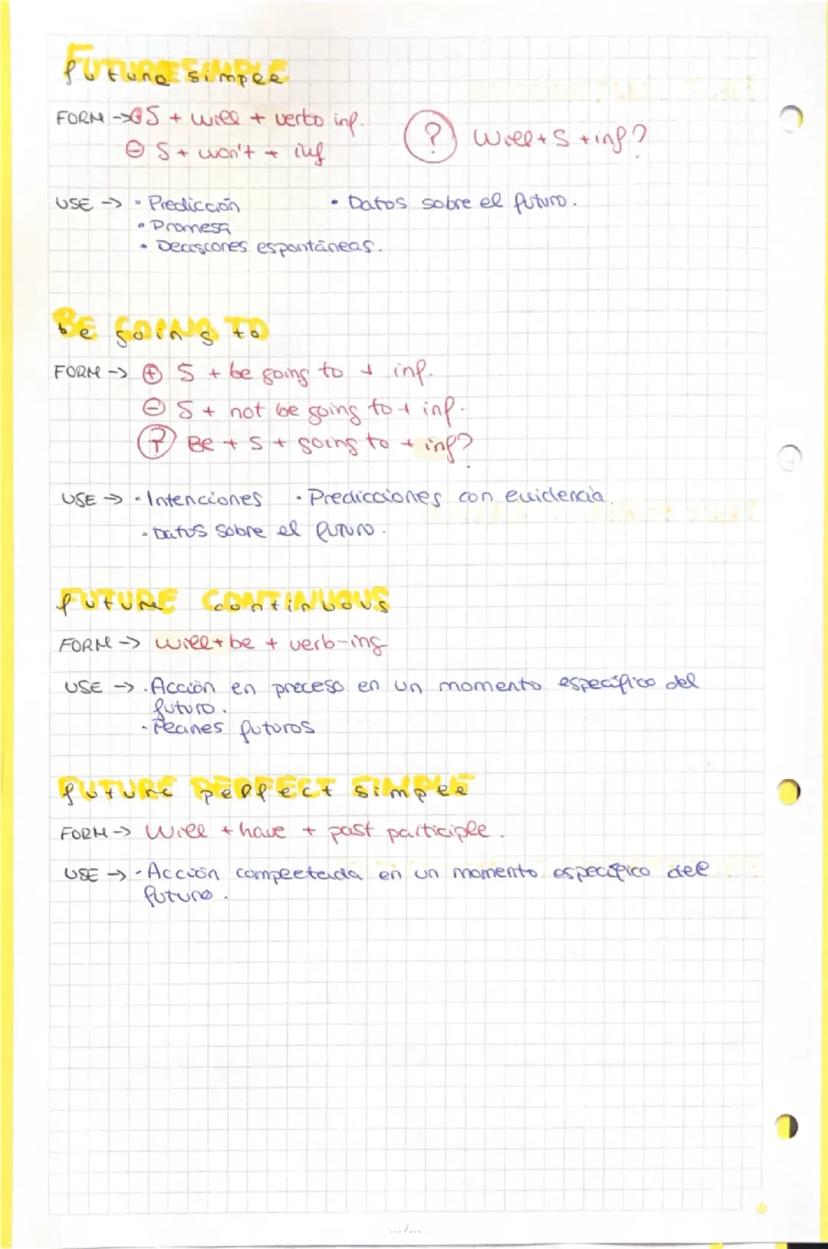 FUTURE SIMPLE
FORM -> ⊕ S + will + verbo inf.
⊖ S + won't + inf
? Will + S + inf?
USE -> • Predicción
• Promesa
• Decisiones espontáneas.
• Datos sobre el futuro.
BE GOING TO
FORM -> ⊕ S + be going to + inf.
⊖ S + not be going to + inf.
? Be + S + going to + inf?
USE -> • Intenciones • Predicciones con evidencia.
• Datos sobre el futuro.
FUTURE CONTINUOUS
FORM -> will + be + verb-ing
USE -> • Acción en proceso en un momento específico del
futuro.
• Planes futuros
FUTURE PERFECT SIMPLE
FORM -> Will + have + past participle.
USE -> • Acción completada en un momento específico del
futuro.
.../...